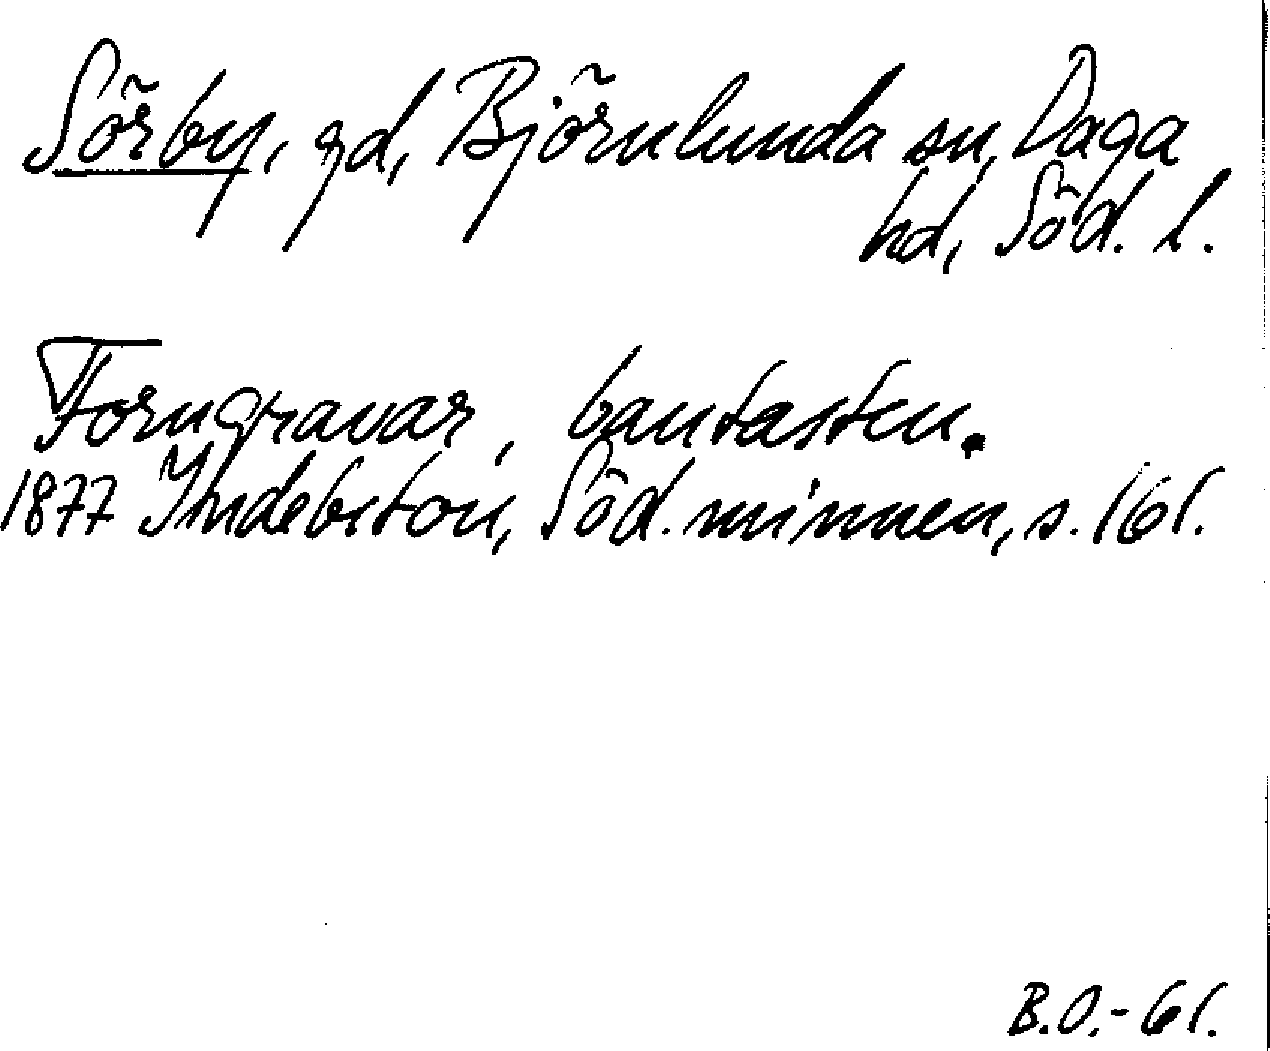 Sörby, gd, Björnlunda sn, Daga
hd, Söd. l.
Forngravar, bautasten.
1877 Indebetou, Söd. minnen, s. 161.
B.O.-61.